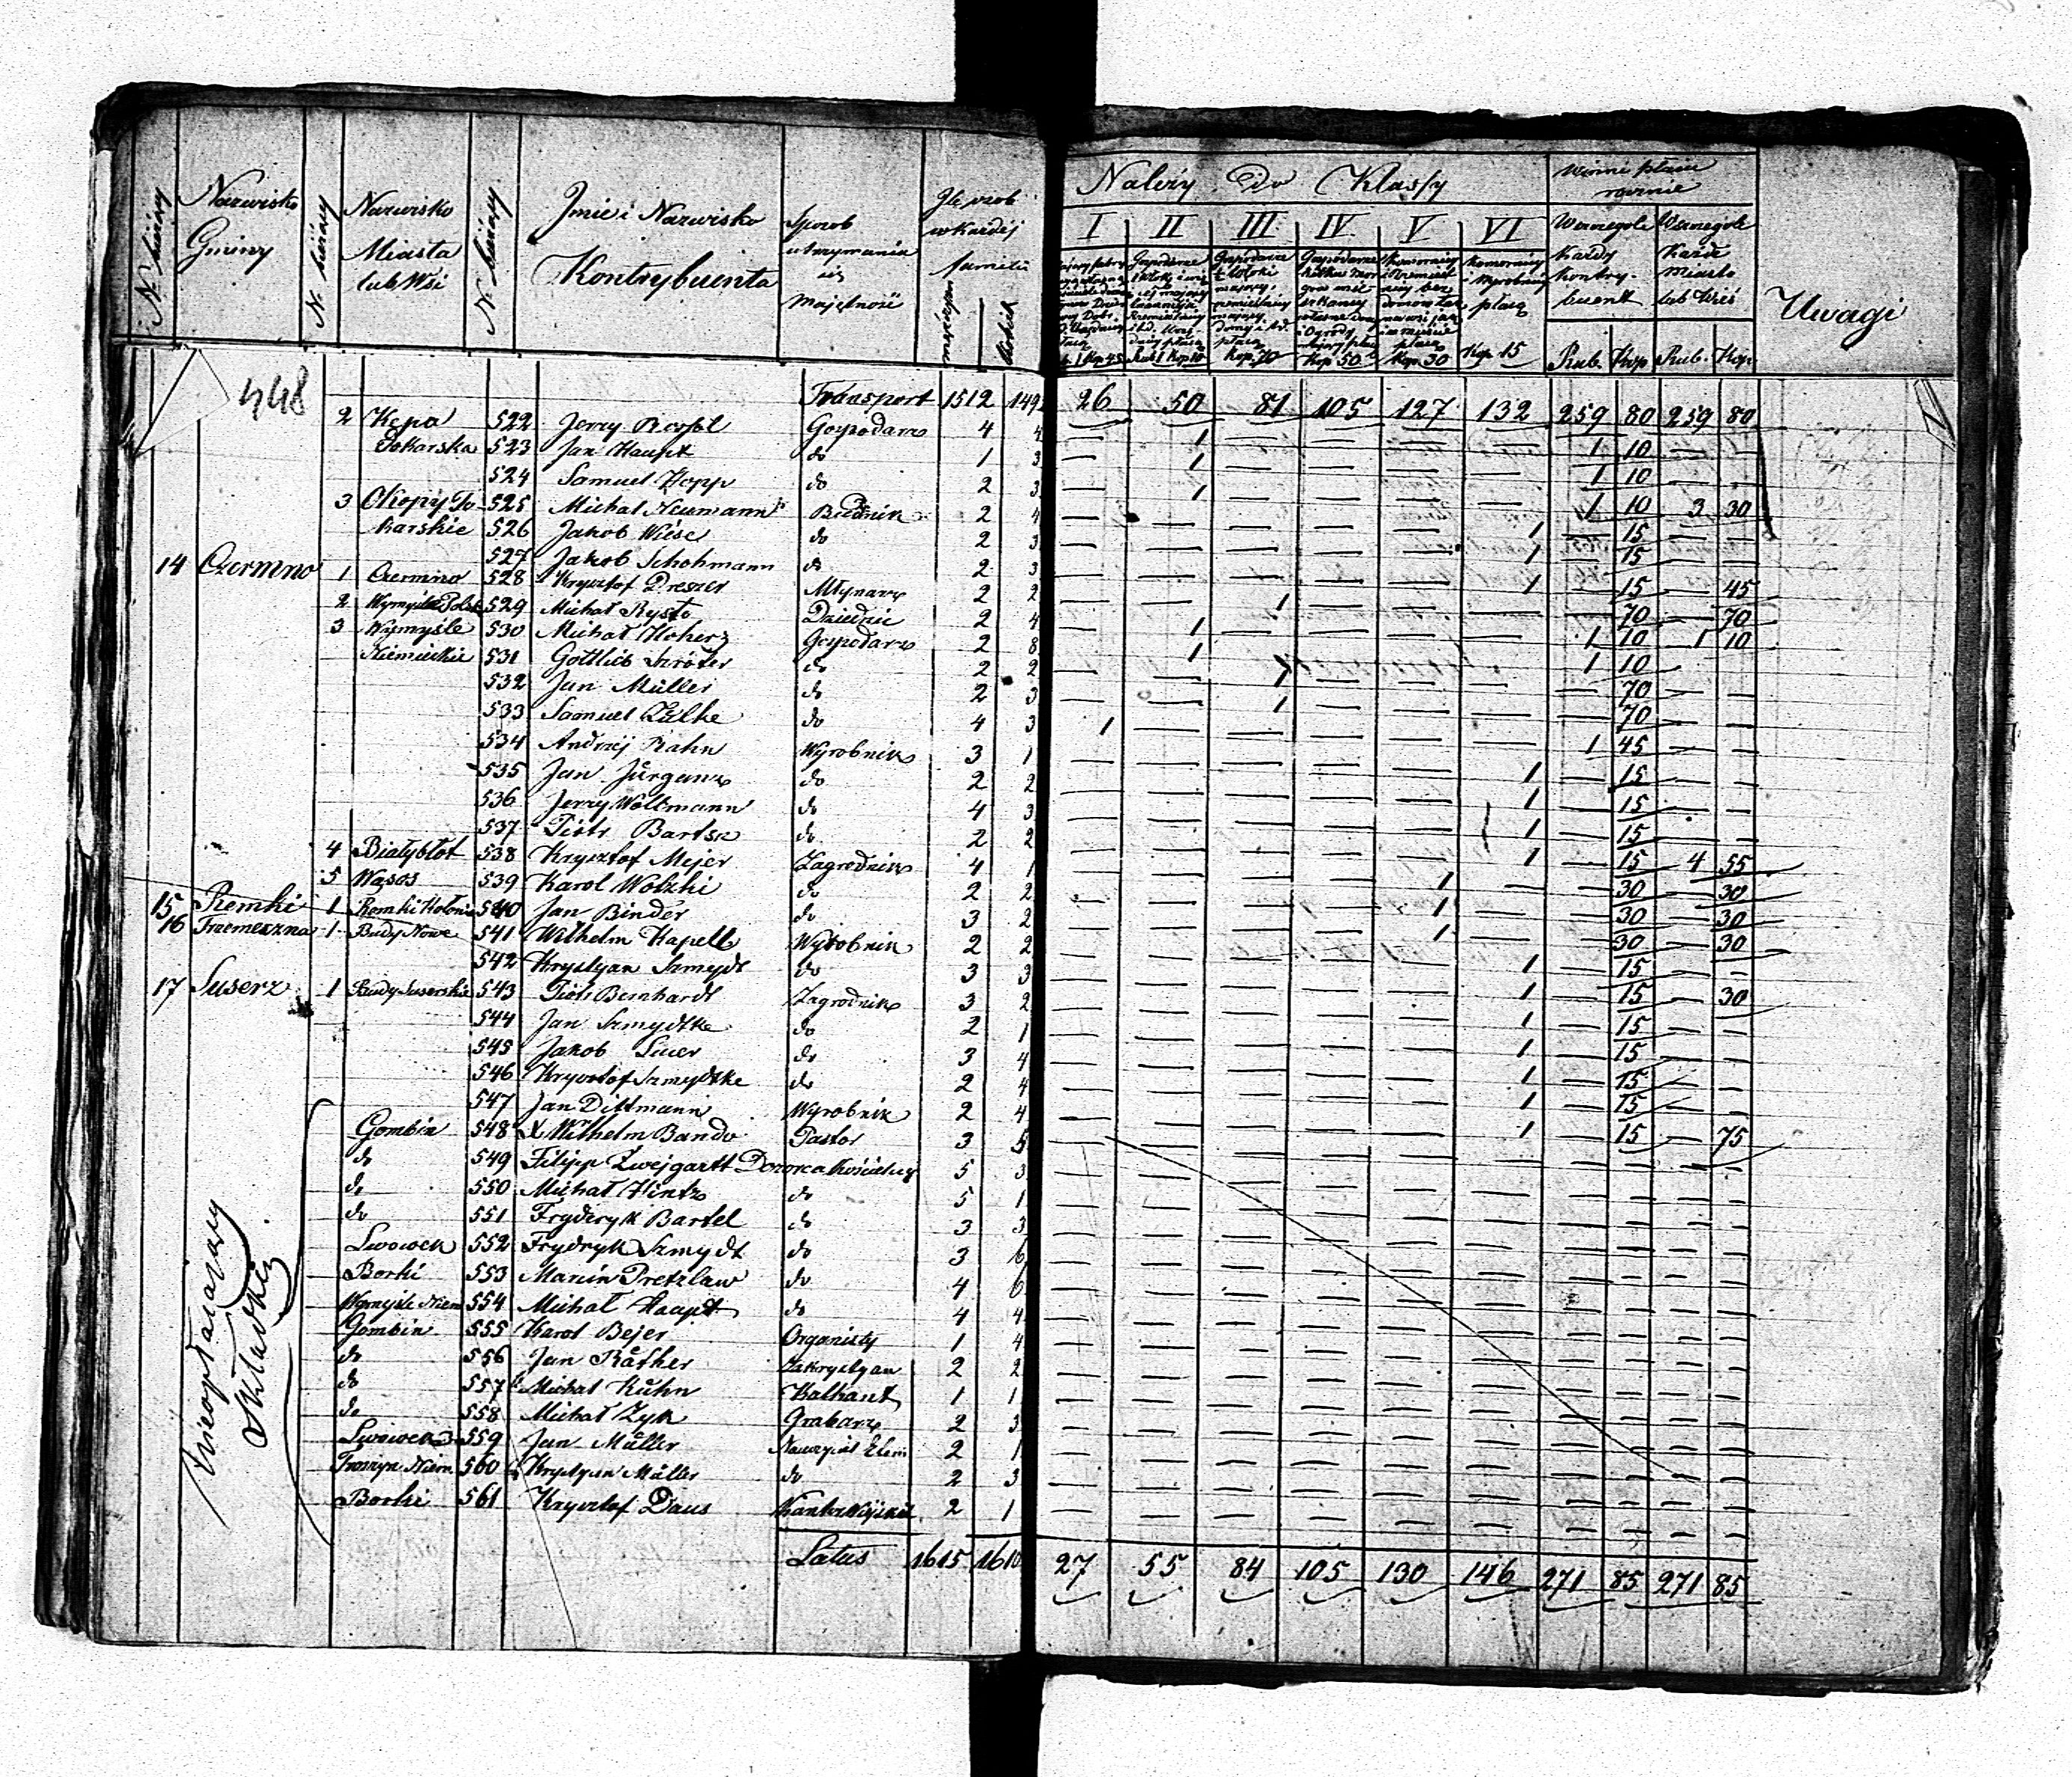 N. bieżący
Nazwisko Gminy
N. bieżący
Nazwisko Miasta lub Wsi
N. bieżący
Jmie i Nazwisko Kontrybuenta
Sposob utrzymania się Majętność
Jle osob w każdej familii
mężczyzn
kobiet
Należy do Klassy
I II III IV V VI
Kop 45
Rub 1 Kop 10
Kop. 70
Kop 50
Kop 30
Kop 15
Winni płacić rocznie
Wszczególe Każdy Kontrybuent
Wszczególe Każde Miasto lub Wieś
Rub. Kop Rub. Kop
Uwagi
448
Transport 1512 149 26 50 81 105 127 132 259 80 259 80
2 Kępa 522 Jerzy Gospodarz 4 4 — 1 — — — — 1 10 — —
Tokarska 523 Jan Haupt do 1 3 — 1 — — — — 1 10 — —
524 Samuel Hopp do 2 3 — 1 — — — — 1 10 3 30
3 Okopy To- 525 Michał Neumann 2 4 — — — — — 1 — 15 — —
karskie 526 Jakob Wiese do 2 3 — — — — — 1 — 15 — —
527 Jakob Schohmann do 2 3 — — — — — 1 — 15 — 45
14 Czermno 1 Czermno 528 Krysztof Dreszer Młynarz 2 2 — — 1 — — — — 70 — 70
2 Wymyśle Polsk 529 Michał Rysto 2 4 — 1 — — — — 1 10 1 10
3 Wymyśle 530 Michał Koherz Gospodarz 2 8 — 1 — — — — 1 10 — —
Niemieckie 531 Gottlieb Szröter do 2 2 — — 1 — — — — 70 — —
532 Jan Müller do 2 3 — — 1 — — — — 70 — —
533 Samuel Zielke do 4 3 1 — — — — — 1 45 — —
534 Andrzej Rahn Wyrobnik 3 1 — — — — — 1 — 15 — —
535 Jan Jürganz do 2 2 — — — — — 1 — 15 — —
536 Jerzy Woltmann do 4 3 — — — — — 1 — 15 — —
537 Piotr Bartsz do 2 2 — — — — — 1 — 15 4 55
4 Białybłot 538 Krysztof Mejer Zagrodnik 4 1 — — — — 1 — — 30 — 30
5 Wąsos 539 Karol Wolzki do 2 2 — — — — 1 — — 30 — 30
15 Remki 1 Remki Kolonia 540 Jan Binder do 3 2 — — — — 1 — — 30 — 30
16 Trzemeszna 1 Budy Nowe 541 Wilhelm Kapell Wyrobnik 2 2 — — — — — 1 — 15 — —
542 Krystyan Szmydt do 3 3 — — — — — 1 — 15 — 30
17 Suserz 1 Budy Suserskie 543 Piotr Bernhardt Zagrodnik 3 2 — — — — — 1 — 15 — —
544 Jan Szmydtke do 2 1 — — — — — 1 — 15 — —
545 Jakob do 3 4 — — — — — 1 — 15 — —
546 Krysztof Szmydtke do 2 4 — — — — — 1 — 15 — —
547 Jan Dittmann Wyrobnik 2 4 — — — — — 1 — 15 — 75
Nieopłacający Składki
Gombin 548 X Wilhelm Bando Pastor 3 5 — — — — — — — — — —
do 549 Filipp Zwejgartt Dozorca Kościelny 5 3 — — — — — — — — — —
do 550 Michał Hintz do 5 1 — — — — — — — — — —
do 551 Fryderyk Bartel do 3 3 — — — — — — — — — —
Lwowek 552 Frydryk Szmydt do 3 6 — — — — — — — — — —
Borki 553 Marcin Pretzlaw do 4 6 — — — — — — — — — —
Wymyśle Niem 554 Michał Haupt do 4 4 — — — — — — — — — —
Gombin 555 Karol Bejer Organisty 1 4 — — — — — — — — — —
do 556 Jan Räther Zakrystyan 2 2 — — — — — — — — — —
do 557 Michał Kühn Kalkant 1 1 — — — — — — — — — —
do 558 Michał Zyk Grabarz 2 3 — — — — — — — — — —
Lwowek 559 Jan Müller Nauczyciel Elem 2 1 — — — — — — — — — —
Troszyn Niem. 560 Krystyan Müller do 2 3 — — — — — — — — — —
Borki 561 Krysztof Daus Kantor Wiejski 2 1 — — — — — — — — — —
Latus 1615 1610 27 55 84 105 130 146 271 85 271 85